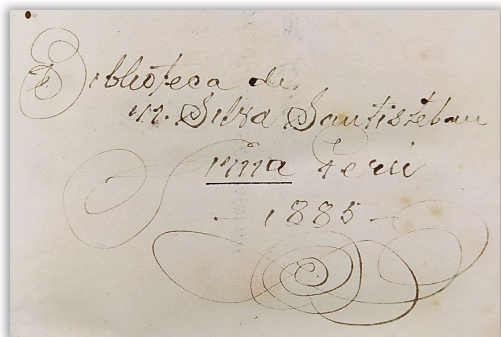 Biblioteca de
M. Silva Santisteban
Lima Perú
- 1885 -